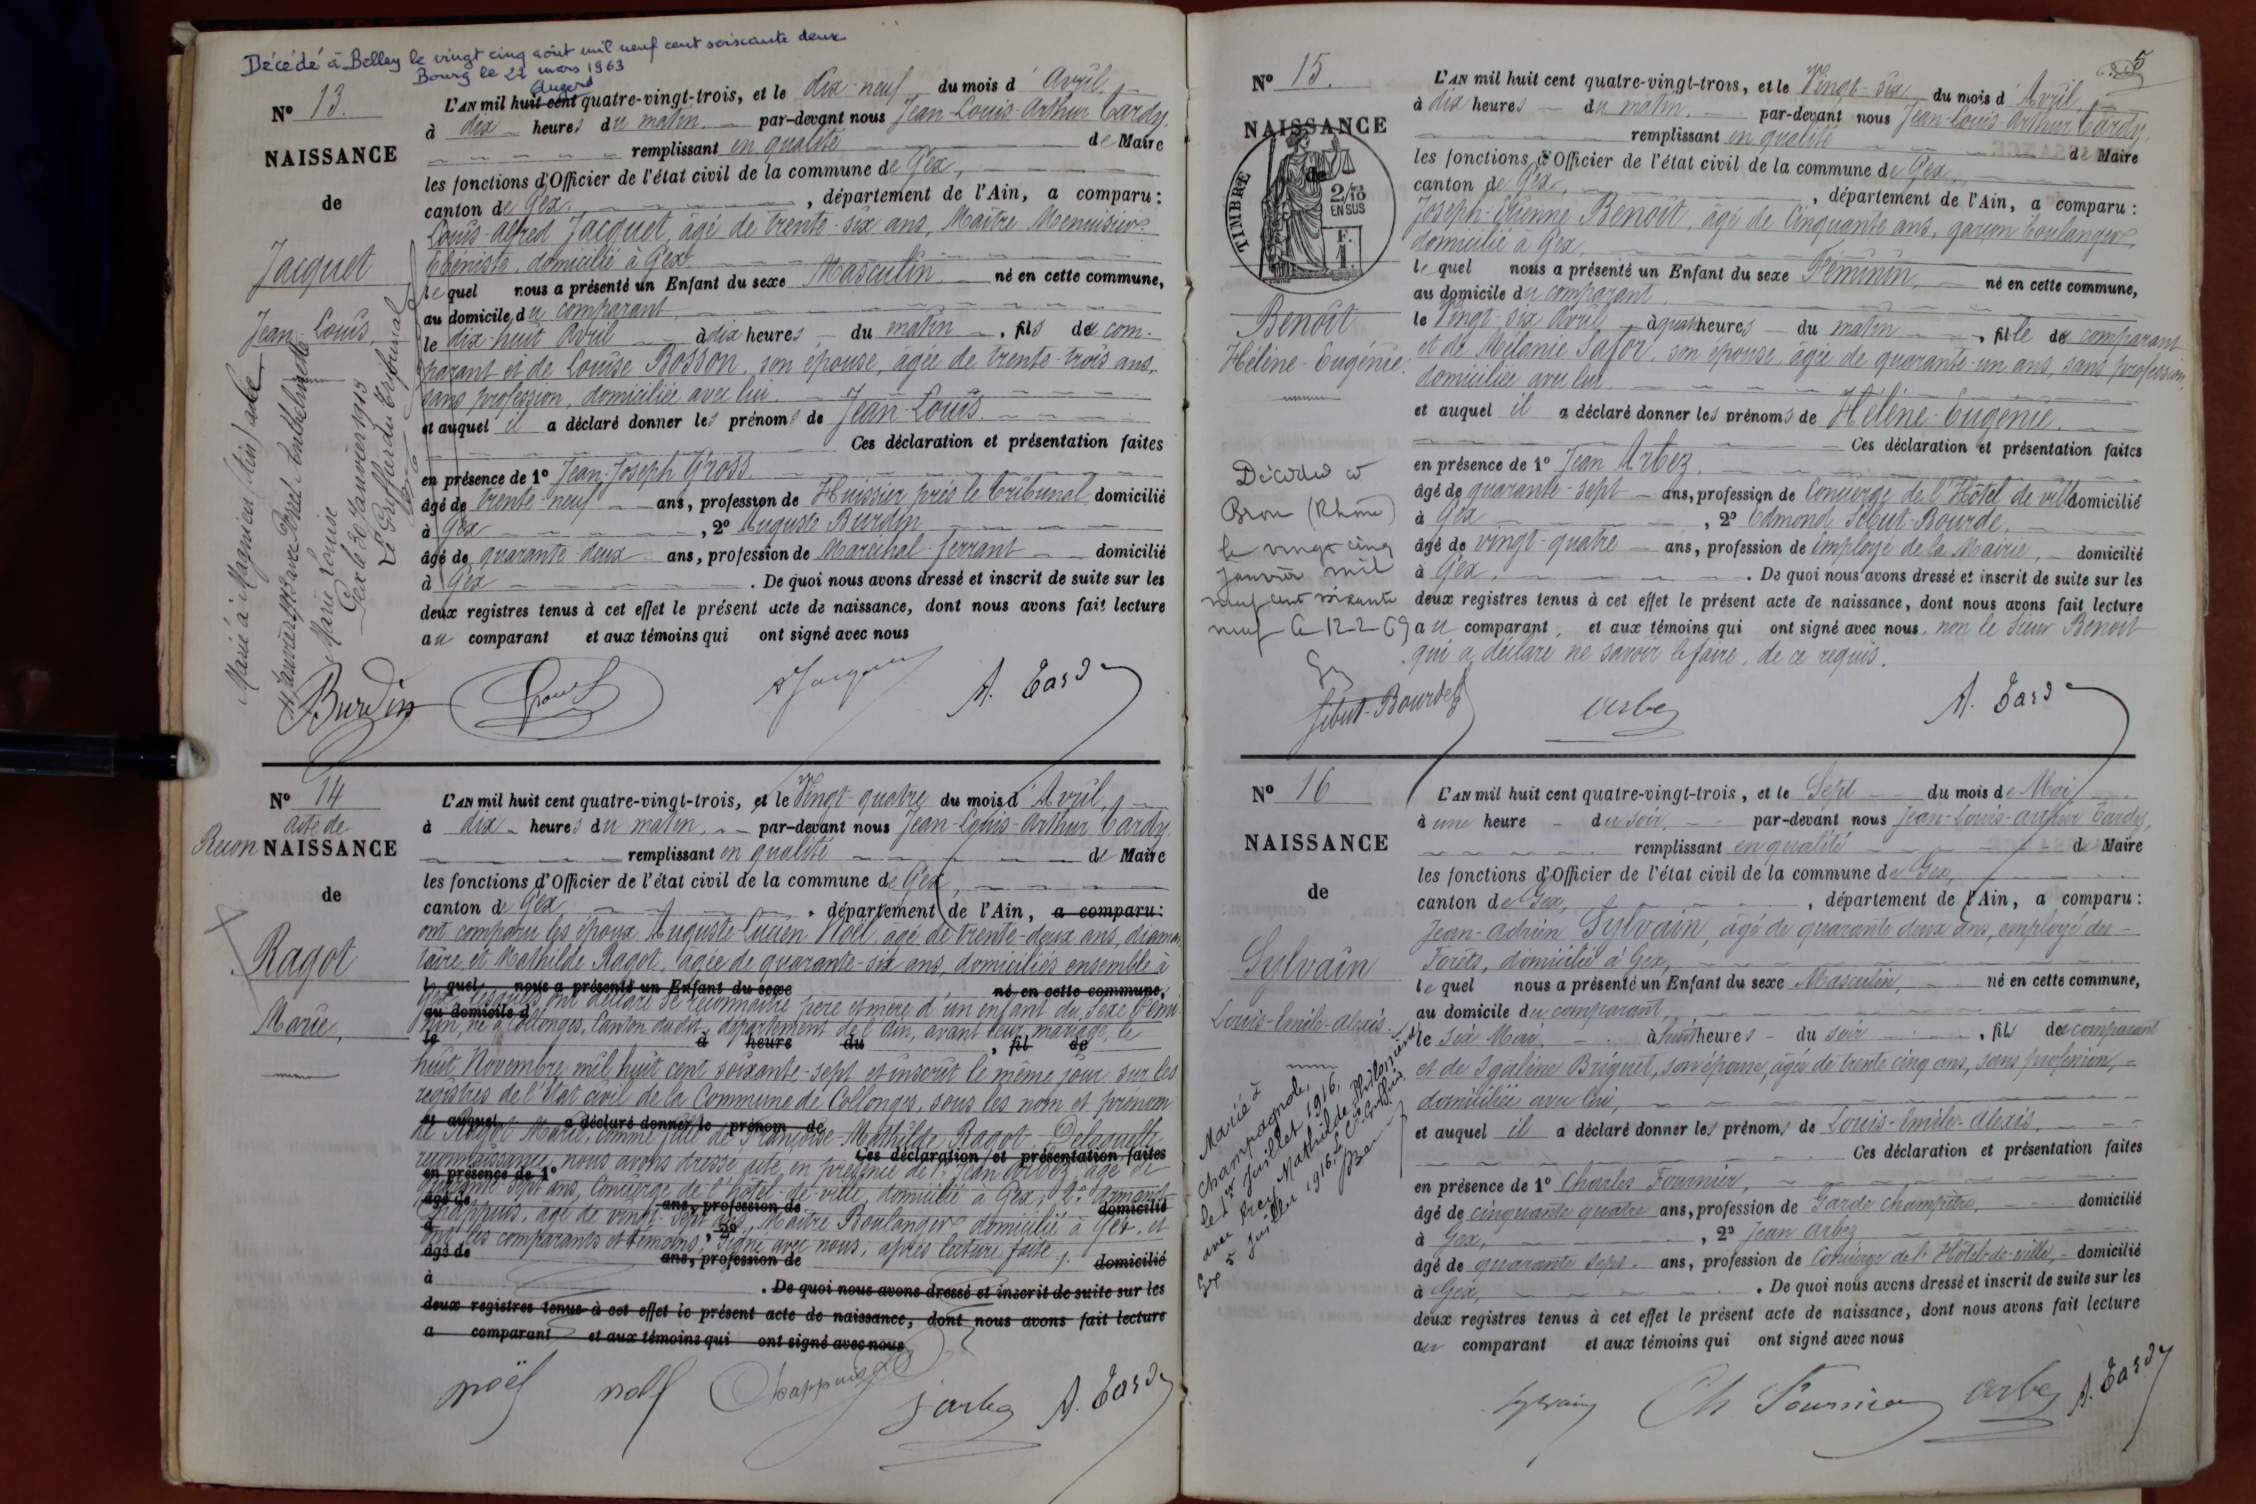 Décédé à Belley le vingt cinq août mil neuf cent soixante deux
Bourg le 22 mars 1963
Nº 13.
NAISSANCE
de
Jacquet
Jean-Louis,
L'AN mil huit cent quatre-vingt-trois, et le dix-neuf du mois d'Avril
à dix heures du matin par-devant nous Jean-Louis-Arthur Tardy,
remplissant en qualité de Maire
les fonctions d'Officier de l'état civil de la commune de Gex,
canton de Gex, département de l'Ain, a comparu:
Louis-Alfred Jacquet, âgé de trente-six ans, Maître Menuisier-
Ébéniste, domicilié à Gex
lequel nous a présenté un Enfant du sexe Masculin né en cette commune,
au domicile du comparant
le dix-huit Avril à dix heures du matin, fils de com-
parant et de Louise Bosson, son épouse, agée de trente-trois ans,
sans profession, domiciliée avec lui.
et auquel il a déclaré donner les prénoms de Jean-Louis.
Ces déclaration et présentation faites
en présence de 1º Jean-Joseph Gross
âgé de trente-neuf ans, profession de Huissier près le tribunal domicilié
à Gex, 2º Auguste Burdin
âgé de quarante-deux ans, profession de Maréchal-ferrant domicilié
à Gex. De quoi nous avons dressé et inscrit de suite sur les
deux registres tenus à cet effet le présent acte de naissance, dont nous avons fait lecture
au comparant et aux témoins qui ont signé avec nous
Marié à Magnieu (Ain)
Marie Louise
Gex le 20 janvier 1913
Le Greffier du Tribunal
Burdin
A. Tardy
Nº 14
acte de
Recon NAISSANCE
de
Ragot
Marie,
L'AN mil huit cent quatre-vingt-trois, et le Vingt-quatre du mois d'Avril,
à dix heures du matin par-devant nous Jean-Louis-Arthur Tardy,
remplissant en qualité de Maire
les fonctions d'Officier de l'état civil de la commune de Gex,
canton de Gex, département de l'Ain, a comparu:
ont comparu les époux Auguste-Lucien Noël, agé de trente-deux ans, diaman-
taire et Mathilde Ragot, âgée de quarante-six ans, domiciliés ensemble à
lequel nous a présenté un Enfant du sexe né en cette commune,
Gex, lesquels ont déclaré se reconnaître père et mère d'un enfant du sexe Fémi-
au domicile d
nin, né à Collonges, Canton du dit, département de l'Ain, avant leur mariage, le
le à heure du, fil de
huit Novembre mil huit cent soixante-sept et inscrit le même jour sur les
registres de l'État civil de la Commune de Collonges, sous les nom et prénom
et auquel a déclaré donner le prénom de
de Ragot Marie, comme fille de Françoise-Mathilde Ragot. De laquelle
Ces déclaration et présentation faites
reconnaissance, nous avons dressé acte, en présence de 1º Jean Arbez âgé de
en présence de 1º
quarante-sept ans, Concierge de l'hôtel-de-ville, domicilié à Gex, 2º
âgé de ans, profession de domicilié
Chappuis, agé de vingt-sept ans, Maître Boulanger domicilié à Gex, et
à, 2º
ont les comparants et témoins, signé avec nous, après lecture faite.
âgé de ans, profession de domicilié
à. De quoi nous avons dressé et inscrit de suite sur les
deux registres tenus à cet effet le présent acte de naissance, dont nous avons fait lecture
a comparant et aux témoins qui ont signé avec nous
noël Chappuis J arbez A. Tardy
5
Nº 15.
NAISSANCE
de
TIMBRE
2/10
EN SUS
F.
1.
Benoît
Hélène-Eugénie.
L'AN mil huit cent quatre-vingt-trois, et le Vingt-six du mois d'Avril
à dix heures du matin par-devant nous Jean-Louis-Arthur Tardy,
remplissant en qualité d Maire
les fonctions d'Officier de l'état civil de la commune de Gex,
canton de Gex, département de l'Ain, a comparu:
Joseph-Étienne Benoît, âgé de Cinquante ans, garçon boulanger,
domicilié à Gex,
lequel nous a présenté un Enfant du sexe Féminin, né en cette commune,
au domicile du comparant
le Vingt-six Avril à quat heures du matin, fille de comparant
et de Mélanie Safor, son épouse, âgée de quarante-un ans, sans profession,
domiciliée avec lui.
et auquel il a déclaré donner les prénoms de Hélène-Eugénie.
Ces déclaration et présentation faites
en présence de 1º Jean Arbez
âgé de quarante-sept ans, profession de Concierge de l'Hôtel de ville domicilié
à Gex, 2º Edmond Sebut-Bourde,
âgé de vingt-quatre ans, profession de Employé de la Mairie, domicilié
à Gex,. De quoi nous avons dressé et inscrit de suite sur les
deux registres tenus à cet effet le présent acte de naissance, dont nous avons fait lecture
au comparant, et aux témoins qui ont signé avec nous, non le sieur Benoît
qui a déclaré ne savoir le faire, de ce requis.
Décédée à
Bron (Rhône)
le vingt cinq
janvier mil
neuf cent soixante
neuf 12-2-69
Sebut-Bourde arbez A. Tardy
Nº 16
NAISSANCE
de
Sylvain
Louis-Emile-Alexis
L'AN mil huit cent quatre-vingt-trois, et le Sept du mois de Mai
à une heure du soir, par-devant nous Jean-Louis-Arthur Tardy,
remplissant en qualité d Maire
les fonctions d'Officier de l'état civil de la commune de Gex,
canton de Gex, département de l'Ain, a comparu:
Jean-Adrien Sylvain, âgé de quarante deux ans, employé des
Forêts, domicilié à Gex,
lequel nous a présenté un Enfant du sexe Masculin, né en cette commune,
au domicile du comparant
le six Mai, à huit heures du soir, fils de comparant
et de Igaline Briquet, son épouse, âgée de trente cinq ans, sans profession,
domiciliée avec lui,
et auquel il a déclaré donner les prénoms de Louis-Emile-Alexis.
Ces déclaration et présentation faites
en présence de 1º Charles Fournier,
âgé de cinquante quatre ans, profession de Garde champêtre, domicilié
à Gex,, 2º Jean Arbez
âgé de quarante sept ans, profession de Concierge de l'Hôtel-de-ville, domicilié
à Gex,. De quoi nous avons dressé et inscrit de suite sur les
deux registres tenus à cet effet le présent acte de naissance, dont nous avons fait lecture
au comparant et aux témoins qui ont signé avec nous
Marié à
Champagnole,
le 1er juillet 1916,
avec Mathilde
Gex 5 juillet 1916
Sylvain Ch Fournier arbez A. Tardy